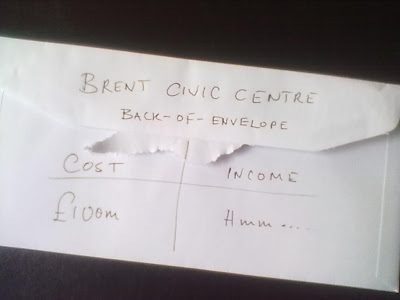 BRENT CIVIC CENTRE
BACK-OF-ENVELOPE
COST INCOME
£100m Hmm....